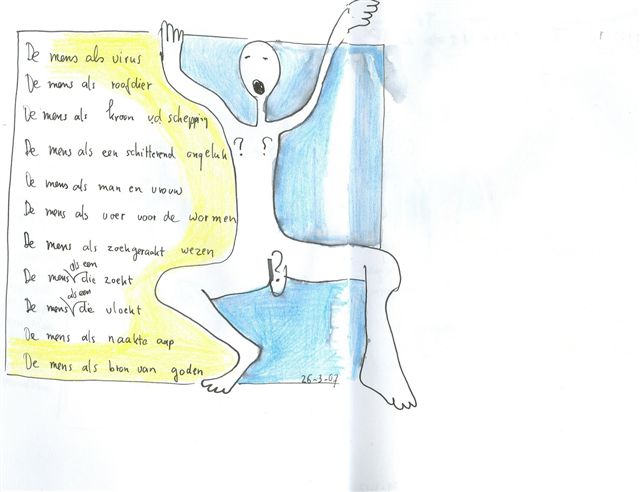 De mens als virus
De mens als roofdier
De mens als kroon vd schepping
De mens als een schitterend ongeluk
? ?
De mens als man en vrouw
De mens als voer voor de wormen
De mens als zoekgeraakt wezen
De mens als een die zoekt
?
De mens als een die vloekt
De mens als naakte aap
De mens als bron van goden
26-3-07